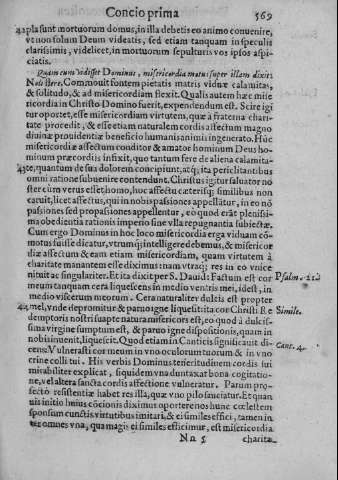 Concio prima 569
42 pla sunt mortuorum domus, in illa debetis eo animo conuenire,
vt non solum Deum videatis, sed etiam tanquam in speculis
clarissimis, videlicet, in mortuorum sepulturis vos ipsos aspi-
ciatis.
Quam cum vidisset Dominus, misericordia motus super illam dixit:
Noli flere. Commouit fontem pietatis matris viduæ calamitas,
& solitudo, & ad misericordiam flexit. Qualis autem hæc mise
ricordia in Christo Domino fuerit, expendendum est. Scire igi
tur oportet, esse misericordiam virtutem, quæ a fraterna chari
tate procedit, & esse etiam naturalem cordis affectum magno
diuinæ prouidentiæ beneficio humanis animis ingeneratum. Hûc
misericordiæ affectum conditor & amator hominum Deus ho
minum præcordiis infixit, quo tantum fere de aliena calamita-
43 te, quantum de sua dolorem concipiunt, atq; ita periclitantibus
omni ratione subuenire contendunt. Christus igitur saluator no
ster cum verus esset homo, hoc affectu cæterisq; similibus non
caruit, licet affectus, qui in nobis passiones appellãtur, in eo nõ
passiones sed propassiones appellentur, eo quod erãt plenissi-
ma obedientia rationis imperio sine vlla repugnantia subiectæ.
Cum ergo Dominus in hoc loco misericordia erga viduam cõ-
motus fuisse dicatur, vtrumq; intelligere debemus, & misericor
diæ affectum & eam etiam misericordiam, quam virtutem à
charitate manantem esse diximus: nam vtraq; res in eo vnice
nituit ac singulariter. Et ita dixit per S. Dauid: Factum est cor Psalm. 21.
meum tanquam cera liquescens in medio ventris mei, id est, in
medio viscerum meorum. Cera naturaliter dulcis est propter
44 mel, vnde depromitur & pari igne liquescit: ita cor Christi Re Simile.
demptoris nostri suapte natura misericors est, eo quod à dulcis-
sima virgine sumptum est, & paruo igne dispositionis, quam in
nobis inuenit, liquescit. Quod etiam in Canticis significauit di-
cens: Vulnerasti cor meum in vno oculorum tuorum & in vno Cant. 4.
crine colli tui. His verbis Dominus teneritudinem cordis sui
mirabiliter explicat, siquidem vna duntaxat bona cogitatio-
ne, vel altera sancta cordis affectione vulneratur. Parum pro-
fecto resistentiæ habet res illa, quæ vno pilo sauciatur. Et quan
uis initio huius cõcionis diximus oportere nos hunc cœlestem
sponsum cunctis virtutibus imitari, & ei similes effici, tamen in
ter omnes vna, qua magis ei similes efficimur, est misericordia
Nn 5 charitæ